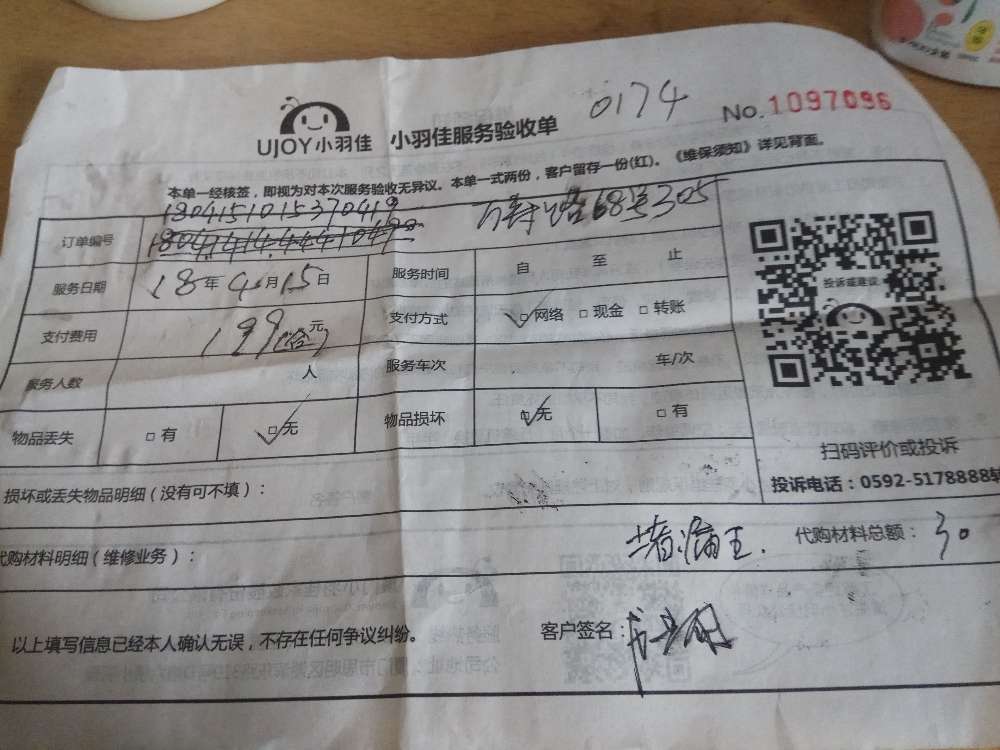 0174
No.1097096
UJOY小羽佳 小羽佳服务验收单
本单一经核签，即视为对本次服务验收无异议。本单一式两份，客户留存一份(红)。《维保须知》详见背面。
1804151015370419
万寿路68号305
订单编号
服务日期 18年4月15日 服务时间 自 至 止
投诉或建议
支付费用 199元 支付方式 □网络 □现金 □转账
服务人数 人 服务车次 车/次
物品丢失 □有 □无 物品损坏 □无 □有
扫码评价或投诉
投诉电话：0592-5178888转
损坏或丢失物品明细（没有可不填）：
代购材料明细（维修业务）： 堵漏王. 代购材料总额： 30
以上填写信息已经本人确认无误，不存在任何争议纠纷。 客户签名：